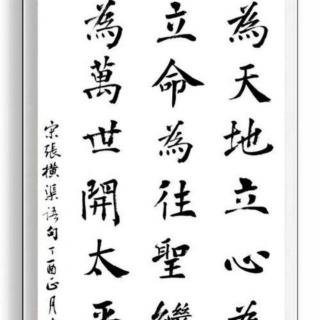 為天地立心為
立命為往聖繼
為萬世開太平
宋張橫渠語句丁酉正月